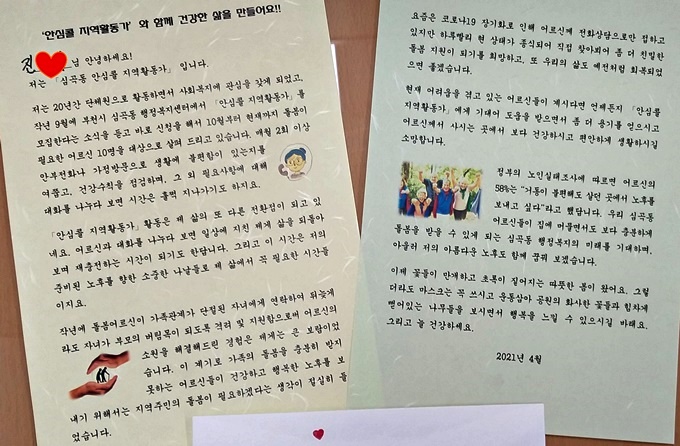 '안심콜 지역활동가' 와 함께 건강한 삶을 만들어요!!
님 안녕하세요!
저는 「심곡동 안심콜 지역활동가」 입니다.
저는 20년간 단체원으로 활동하면서 사회복지에 관심을 갖게 되었고,
작년 9월에 부천시 심곡동 행정복지센터에서 「안심콜 지역활동가」를
모집한다는 소식을 듣고 바로 신청을 해서 10월부터 현재까지 돌봄이
필요한 어르신 10명을 대상으로 살펴 드리고 있습니다. 매월 2회 이상
안부전화나 가정방문으로 생활에 불편함이 있는지를
여쭙고, 건강수칙을 점검하며, 그 외 필요사항에 대해
대화를 나누다 보면 시간은 훌쩍 지나가기도 하지요.
「안심콜 지역활동가」 활동은 제 삶의 또 다른 전환점이 되고 있
네요. 어르신과 대화를 나누다 보면 일상에 지친 제게 삶을 되돌아
보며 재충전하는 시간이 되기도 한답니다. 그리고 이 시간은 저의
준비된 노후를 향한 소중한 나날들로 제 삶에서 꼭 필요한 시간들
이지요.
작년에 돌봄어르신이 가족관계가 단절된 자녀에게 연락하여 뒤늦게
라도 자녀가 부모의 버팀목이 되도록 격려 및 지원함으로써 어르신의
소원을 해결해드린 경험은 제게는 큰 보람이었
습니다. 이 계기로 가족의 돌봄을 충분히 받지
못하는 어르신들이 건강하고 행복한 노후를 보
내기 위해서는 지역주민의 돌봄이 필요하겠다는 생각이 절실히 들
었습니다.
요즘은 코로나19 장기화로 인해 어르신께 전화상담으로만 접하고
있지만 하루빨리 현 상태가 종식되어 직접 찾아뵈어 좀 더 친밀한
돌봄 지원이 되기를 희망하고, 또 우리의 삶도 예전처럼 회복되었
으면 좋겠습니다.
현재 어려움을 겪고 있는 어르신이 계시다면 언제든지 「안심콜
지역활동가」에게 기대어 도움을 받으면서 좀 더 용기를 얻으시고
어르신께서 사시는 곳에서 보다 건강하시고 편안하게 생활하시길
소망합니다.
정부의 노인실태조사에 따르면 어르신의
58%는 "거동이 불편해도 살던 곳에서 노후를
보내고 싶다"라고 했답니다. 우리 심곡동
어르신들이 집에 머물면서도 보다 충분하게
돌봄을 받을 수 있게 되는 심곡동 행정복지의 미래를 기대하며,
아울러 저의 아름다운 노후도 함께 꿈꿔 보겠습니다.
이제 꽃들이 만개하고 초록이 짙어지는 따뜻한 봄이 왔어요. 그렇
더라도 마스크는 꼭 쓰시고 운동삼아 공원의 화사한 꽃들과 힘차게
뻗어있는 나무들을 보시면서 행복을 느낄 수 있으시길 바래요.
그리고 늘 건강하세요.
2021년 4월